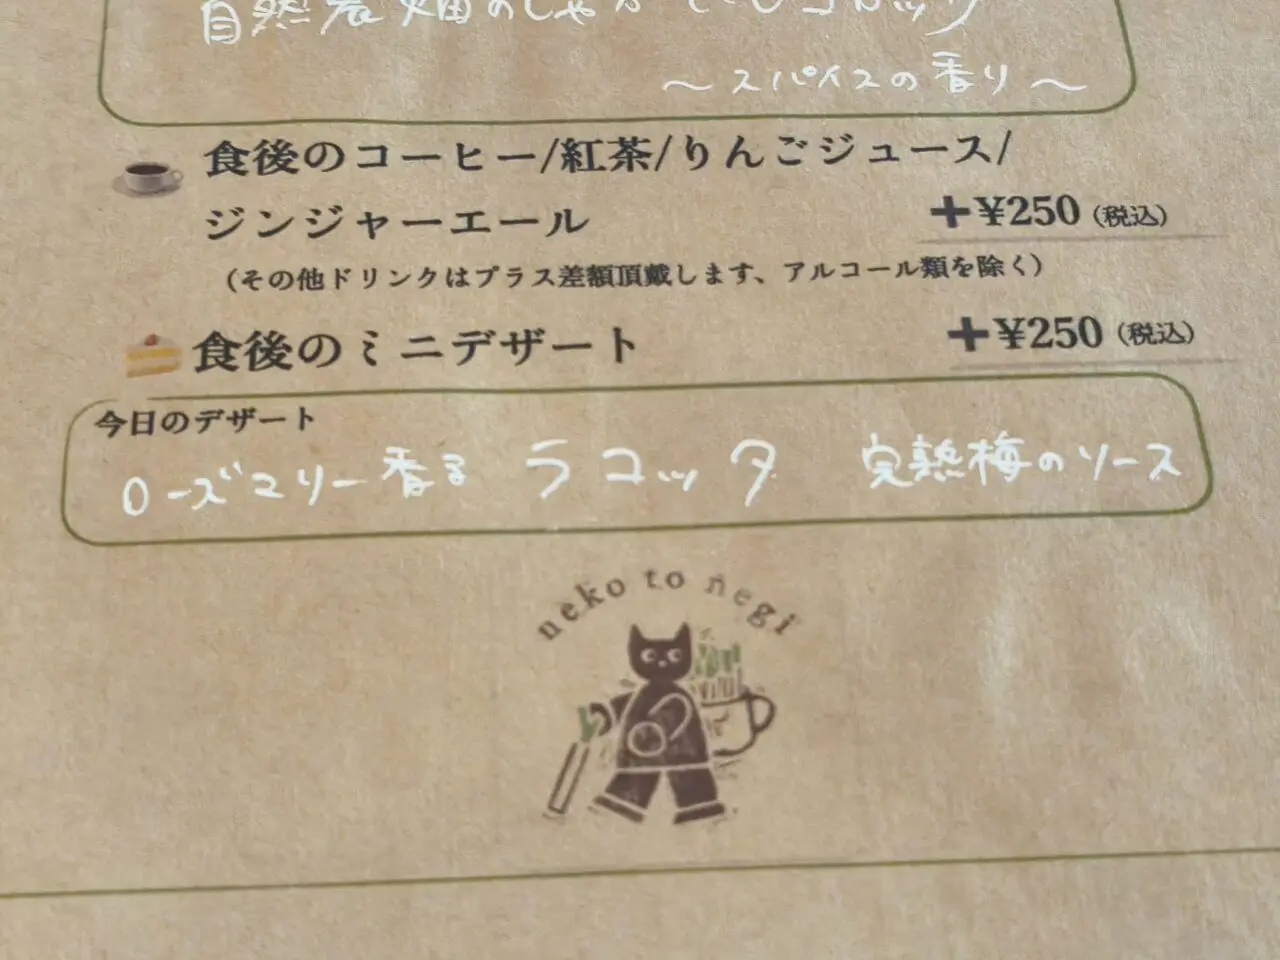 自然農畑のじゃがいもコロッケ
〜スパイスの香り〜
食後のコーヒー/紅茶/りんごジュース/
ジンジャーエール +¥250（税込）
（その他ドリンクはプラス差額頂戴します、アルコール類を除く）
食後のミニデザート +¥250（税込）
今日のデザート
ローズマリー香る ラコッタ 完熟梅のソース
neko to negi